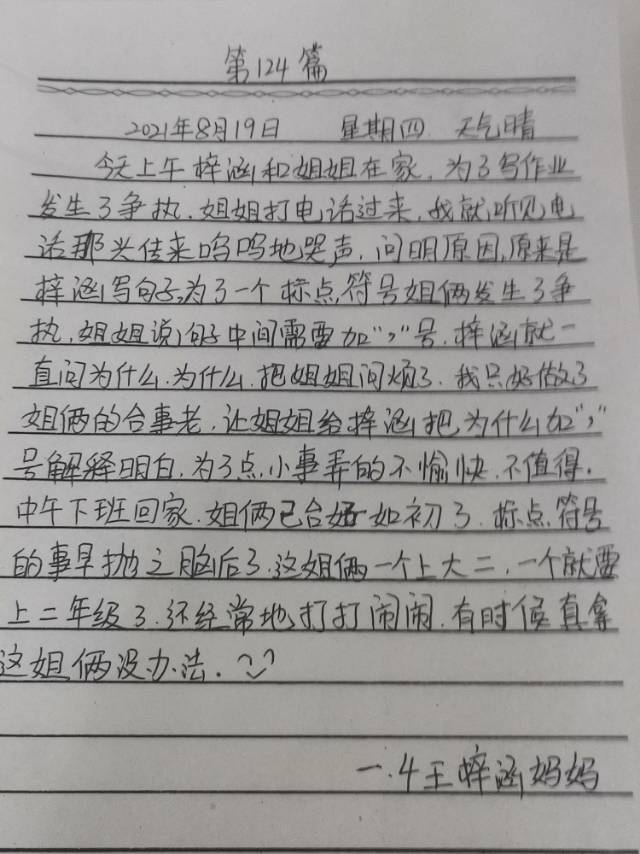 第124篇
2021年8月19日 星期四 天气晴
今天上午梓涵和姐姐在家,为了写作业
发生了争执,姐姐打电话过来,我就听见电
话那头传来呜呜地哭声,问明原因,原来是
梓涵写句子,为了一个标点,符号姐俩发生了争
执,姐姐说句子中间需要加“,”号,梓涵就一
直问为什么,为什么,把姐姐问烦了,我只好做了
姐俩的合事老,让姐姐给梓涵把为什么加“,”
号解释明白,为了点小事弄的不愉快,不值得,
中午下班回家,姐俩已合好如初了,标点符号
的事早抛之脑后了,这姐俩一个上大二,一个就要
上二年级了,还经常地打打闹闹,有时候真拿
这姐俩没办法.
一.4王梓涵妈妈